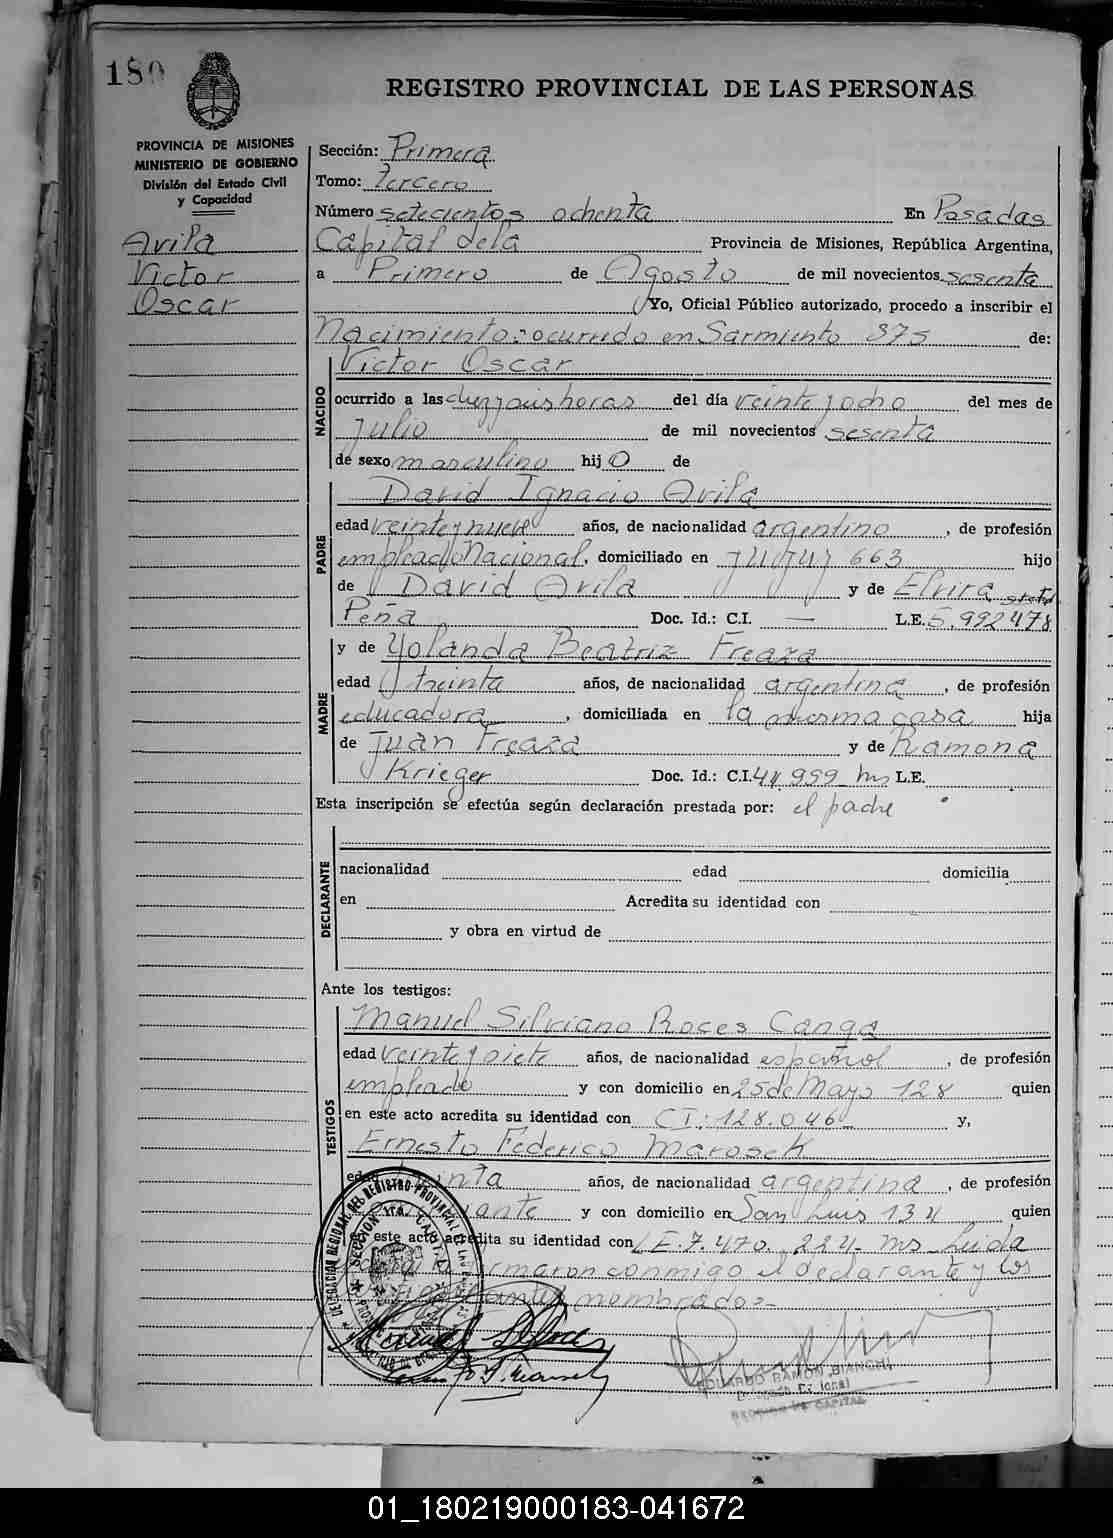 180
REGISTRO PROVINCIAL DE LAS PERSONAS
PROVINCIA DE MISIONES
MINISTERIO DE GOBIERNO
División del Estado Civil
y Capacidad
Avila
Victor
Oscar
Sección: Primera
Tomo: tercero
Número setecientos ochenta En Posadas
Capital de la Provincia de Misiones, República Argentina,
a Primero de Agosto de mil novecientos sesenta
Yo, Oficial Público autorizado, procedo a inscribir el
Nacimiento: ocurrido en Sarmiento 375 de:
NACIDO
Victor Oscar
ocurrido a las diez y seis horas del día veinte y ocho del mes de
julio de mil novecientos sesenta
de sexo masculino hijo de
PADRE
David Ignacio Avila
edad veinte y nueve años, de nacionalidad argentino, de profesión
empleado Nacional, domiciliado en Jujuy 663 hijo
de David Avila y de Elvira
Peña Doc. Id.: C.I. — L.E. 5.992478
MADRE
y de Yolanda Beatriz Freaza
edad treinta años, de nacionalidad argentina, de profesión
educadora, domiciliada en la misma casa hija
de Juan Freaza y de Ramona
Krieger Doc. Id.: C.I. 44.999 ms L.E.
Esta inscripción se efectúa según declaración prestada por: el padre
DECLARANTE
nacionalidad edad domicilia
en Acredita su identidad con
y obra en virtud de
Ante los testigos:
TESTIGOS
Manuel Silviano Roces Canga
edad veinte y siete años, de nacionalidad español, de profesión
empleado y con domicilio en 25 de Mayo 128 quien
en este acto acredita su identidad con CI: 128.046 y,
Ernesto Federico Marosek
edad treinta años, de nacionalidad argentina, de profesión
y con domicilio en San Luis 134 quien
este acto acredita su identidad con L.E. 7.470.224 ms Leida
firmaron conmigo el declarante y los
nombrados
DELEGACION REGIONAL DEL REGISTRO PROVINCIAL DE LAS PERSONAS
SECCION 1ra. CAPITAL
EDUARDO RAMON BIANCHI
01_180219000183-041672